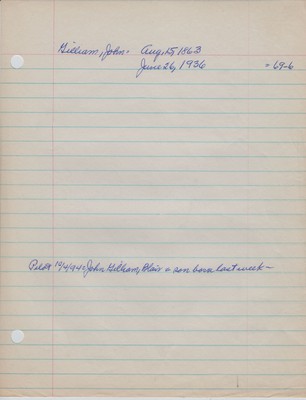 Gilliam, John - Aug. 15, 1863
June 26, 1936 = 69-6
P.D.A 12/4/94: John Gilliam, Blair + son born last week -